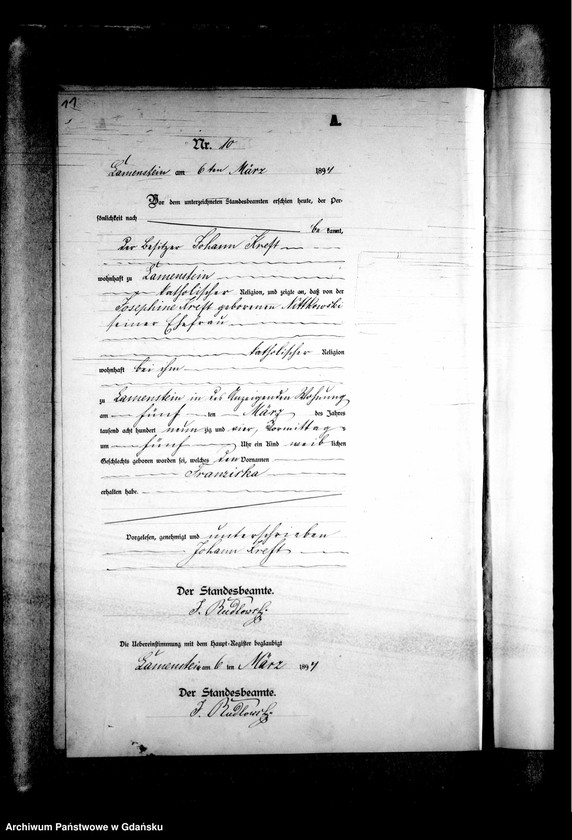 11
A.
Nr. 10
Lamenstein am 6 ten März 1894
Vor dem unterzeichneten Standesbeamten erschien heute, der Per-
sönlichkeit nach
be kannt,
der Besitzer Johann Kreft
wohnhaft zu Lamenstein
katholischer Religion, und zeigte an, daß von der
Josephine Kreft geborenen Nittkowski
seiner Ehefrau
katholischer Religion
wohnhaft bei ihm
zu Lamenstein in des Anzeigenden Wohnung
am fünf ten März des Jahres
tausend acht hundert neun zig und vier, Vormittag s
um fünf Uhr ein Kind weib lichen
Geschlechts geboren worden sei, welches den Vornamen
Franziska
erhalten habe.
Vorgelesen, genehmigt und unterschrieben
Johann Kreft
Der Standesbeamte.
J. Rudlowski.
Die Uebereinstimmung mit dem Haupt-Register beglaubigt
Lamenstein am 6 ten März 1894
Der Standesbeamte.
J. Rudlowski.
Archiwum Państwowe w Gdańsku